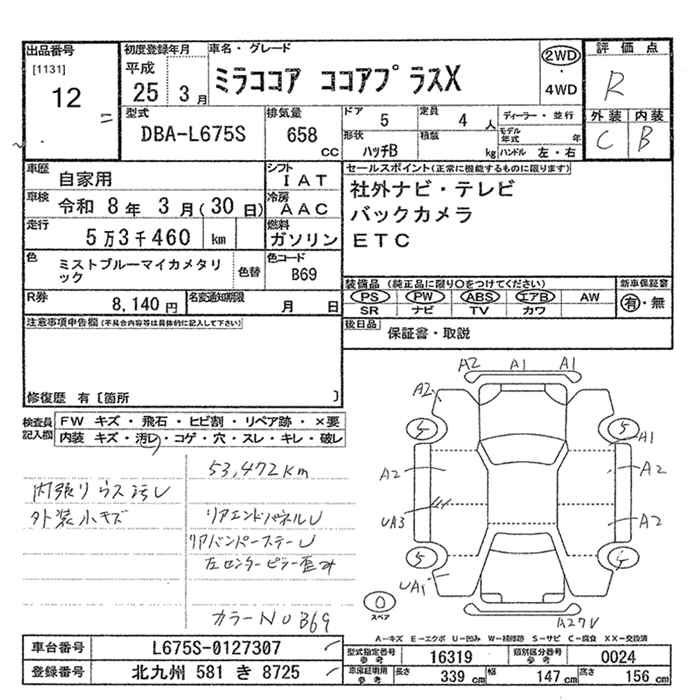 出品番号
[1131]
12
初度登録年月
平成
25 3 月
車名・グレード
ミラココア ココアプラスX
2WD
・
4WD
評価点
R
外装 内装
C B
型式
DBA-L675S
排気量
658
CC
ドア
5
定員
4 人
ディーラー・並行
モデル
年式 年
形状
ハッチB
積載
kg
ハンドル 左・右
車歴
自家用
シフト
IAT
車検
令和 8 年 3 月(30日)
冷房
AAC
走行
5万3千460 km
燃料
ガソリン
色
ミストブルーマイカメタリ
ック
色替
色コード
B69
R券
8,140 円
名変通知期限
月 日
セールスポイント(正常に機能するものに限ります)
社外ナビ・テレビ
バックカメラ
ETC
装備品 (純正品に限り○をつけてください)
PS PW ABS エアB AW
SR ナビ TV カワ
新車保証書
有・無
後日品
保証書・取説
注意事項申告欄(不具合内容等は具体的に記入して下さい)
修復歴 有〔箇所 〕
検査員
記入欄
FW キズ・飛石・ヒビ割・リペア跡・×要
内装 キズ・汚レ・コゲ・穴・スレ・キレ・破レ
53,472km
内張りウス汚レ
外装小キズ
リアエンドパネルU
リアバンパーステーU
左センターピラー歪み
カラーNO B69
A2 A1 A1
A2
5 5
A1
A2 A2
UA3 A2
5 5
UA1
0
スペア
A27V
A-キズ E-エクボ U-凹み W-補修跡 S-サビ C-腐食 XX-交換済
車台番号
L675S-0127307
登録番号
北九州 581 き 8725
型式指定番号
参考
16319
類別区分番号
参考
0024
車庫証明用
参考
長さ
339 cm
幅
147 cm
高さ
156 cm